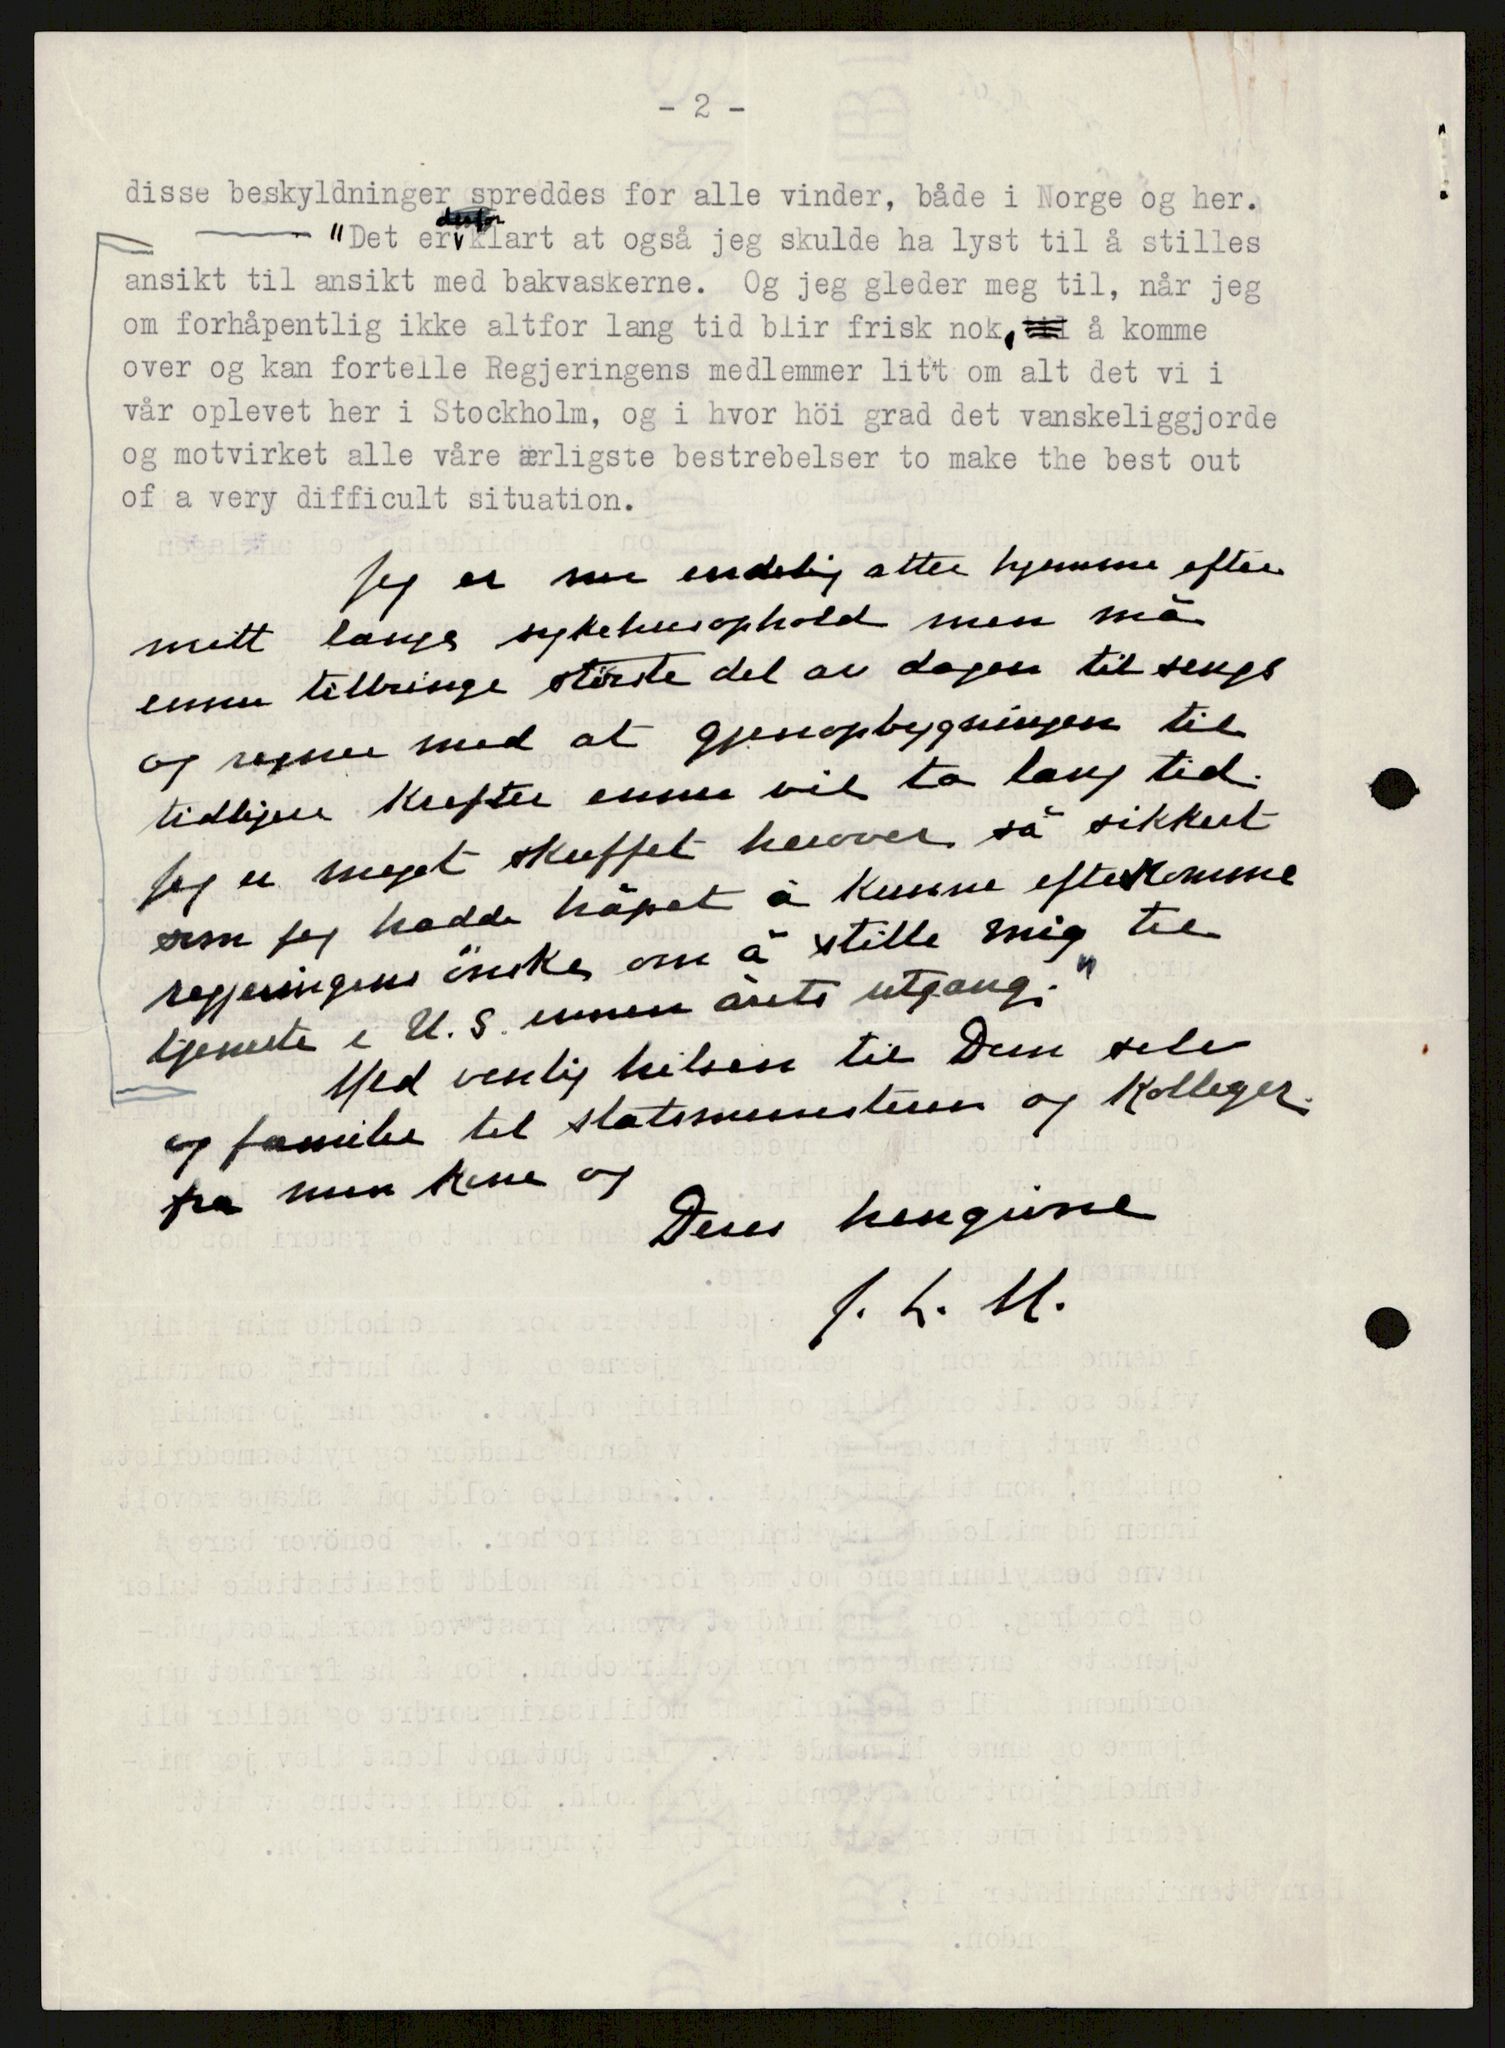 - 2 -
disse beskyldninger spreddes for alle vinder, både i Norge og her.
"Det er derfor klart at også jeg skulde ha lyst til å stilles
ansikt til ansikt med bakvaskerne. Og jeg gleder meg til, når jeg
om forhåpentlig ikke altfor lang tid blir frisk nok, til å komme
over og kan fortelle Regjeringens medlemmer litt om alt det vi i
vår oplevet her i Stockholm, og i hvor höi grad det vanskeliggjorde
og motvirket alle våre ærligste bestrebelser to make the best out
of a very difficult situation.
Jeg er nu endelig atter hjemme efter
mitt lange sykehusophold men må
ennu tilbringe störste del av dagen til sengs
og regner med at gjenopbygningen til
tidligere krefter ennu vil ta lang tid.
Jeg er meget skuffet herover så sikkert
som jeg hadde håpet å kunne efterkomme
regjeringens önske om å stille mig til
tjeneste i U.S. innen årets utgang."
Med venlig hilsen til Dem selv
og familie til statsministeren og kolleger.
fra min kone og
Deres hengivne
J. L. M.